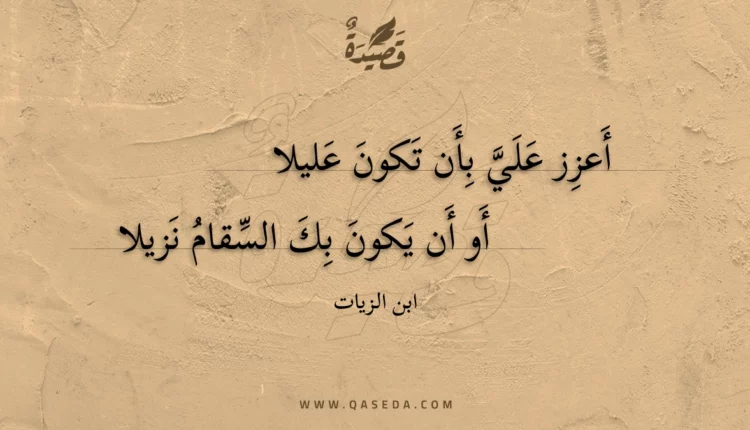 قَصِيْدَةٌ
أَعزِز عَلَيَّ بِأَن تَكونَ عَليلا
أَو أَن يَكونَ بِكَ السِّقامُ نَزيلا
ابن الزيات
WWW.QASEDA.COM